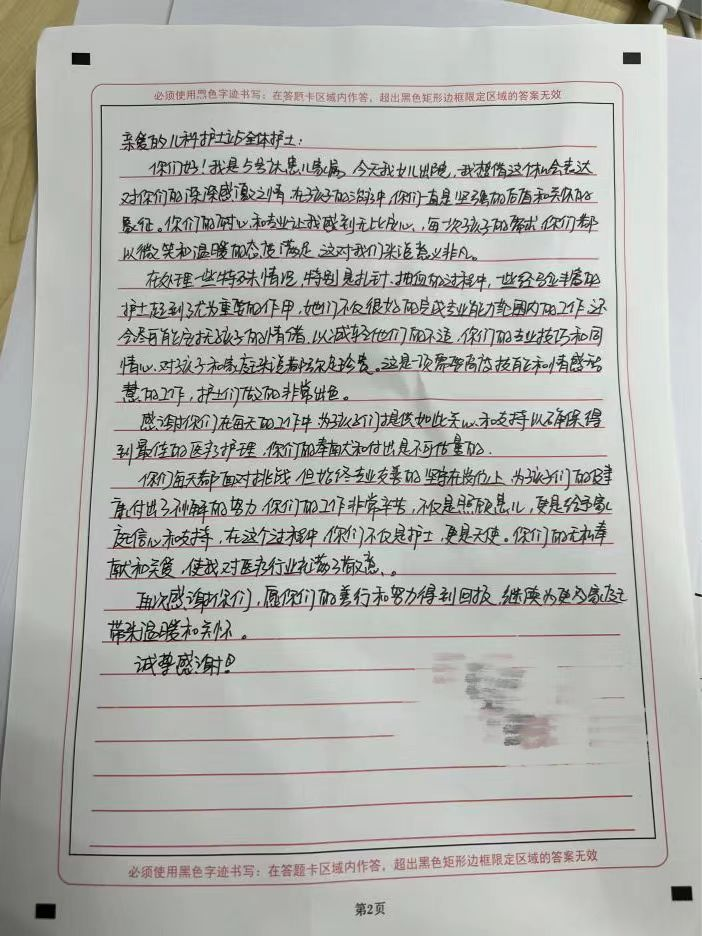 必须使用黑色字迹书写：在答题卡区域内作答，超出黑色矩形边框限定区域的答案无效
亲爱的儿科护士站全体护士：
你们好！我是5号床患儿家属，今天我女儿出院，我想借这个机会表达
对你们的深深感激之情，在孩子的治疗中，你们一直是坚强的后盾和关怀的
象征。你们的耐心和专业让我感到无比安心，每一次孩子的需求，你们都
以微笑和温暖的态度满足，这对我们来说意义非凡。
在处理一些特殊情况，特别是扎针、抽血的过程中，一些经验丰富的
护士起到了尤为重要的作用，她们不仅很好的完成专业能力范围内的工作，还
会尽可能安抚孩子的情绪，以减轻他们的不适，你们的专业技巧和同
情心，对孩子和家庭来说都弥足珍贵。这是一项需要高度技能和情感智
慧的工作，护士们做的非常出色。
感谢你们在每天的工作中，为孩子们提供如此关心和支持以确保得
到最佳的医疗护理，你们的奉献和付出是不可估量的.
你们每天都面对挑战，但始终专业友善的坚持在岗位上，为孩子们的健
康付出了不懈的努力，你们的工作非常辛苦，不仅是照顾患儿，更是给予家
庭信心和支持，在这个过程中，你们不仅是护士，更是天使。你们的无私奉
献和关爱，使我对医疗行业充满了敬意。
再次感谢你们，愿你们的善行和努力得到回报，继续为更多家庭
带来温暖和关怀。
诚挚感谢！
必须使用黑色字迹书写：在答题卡区域内作答，超出黑色矩形边框限定区域的答案无效
第2页